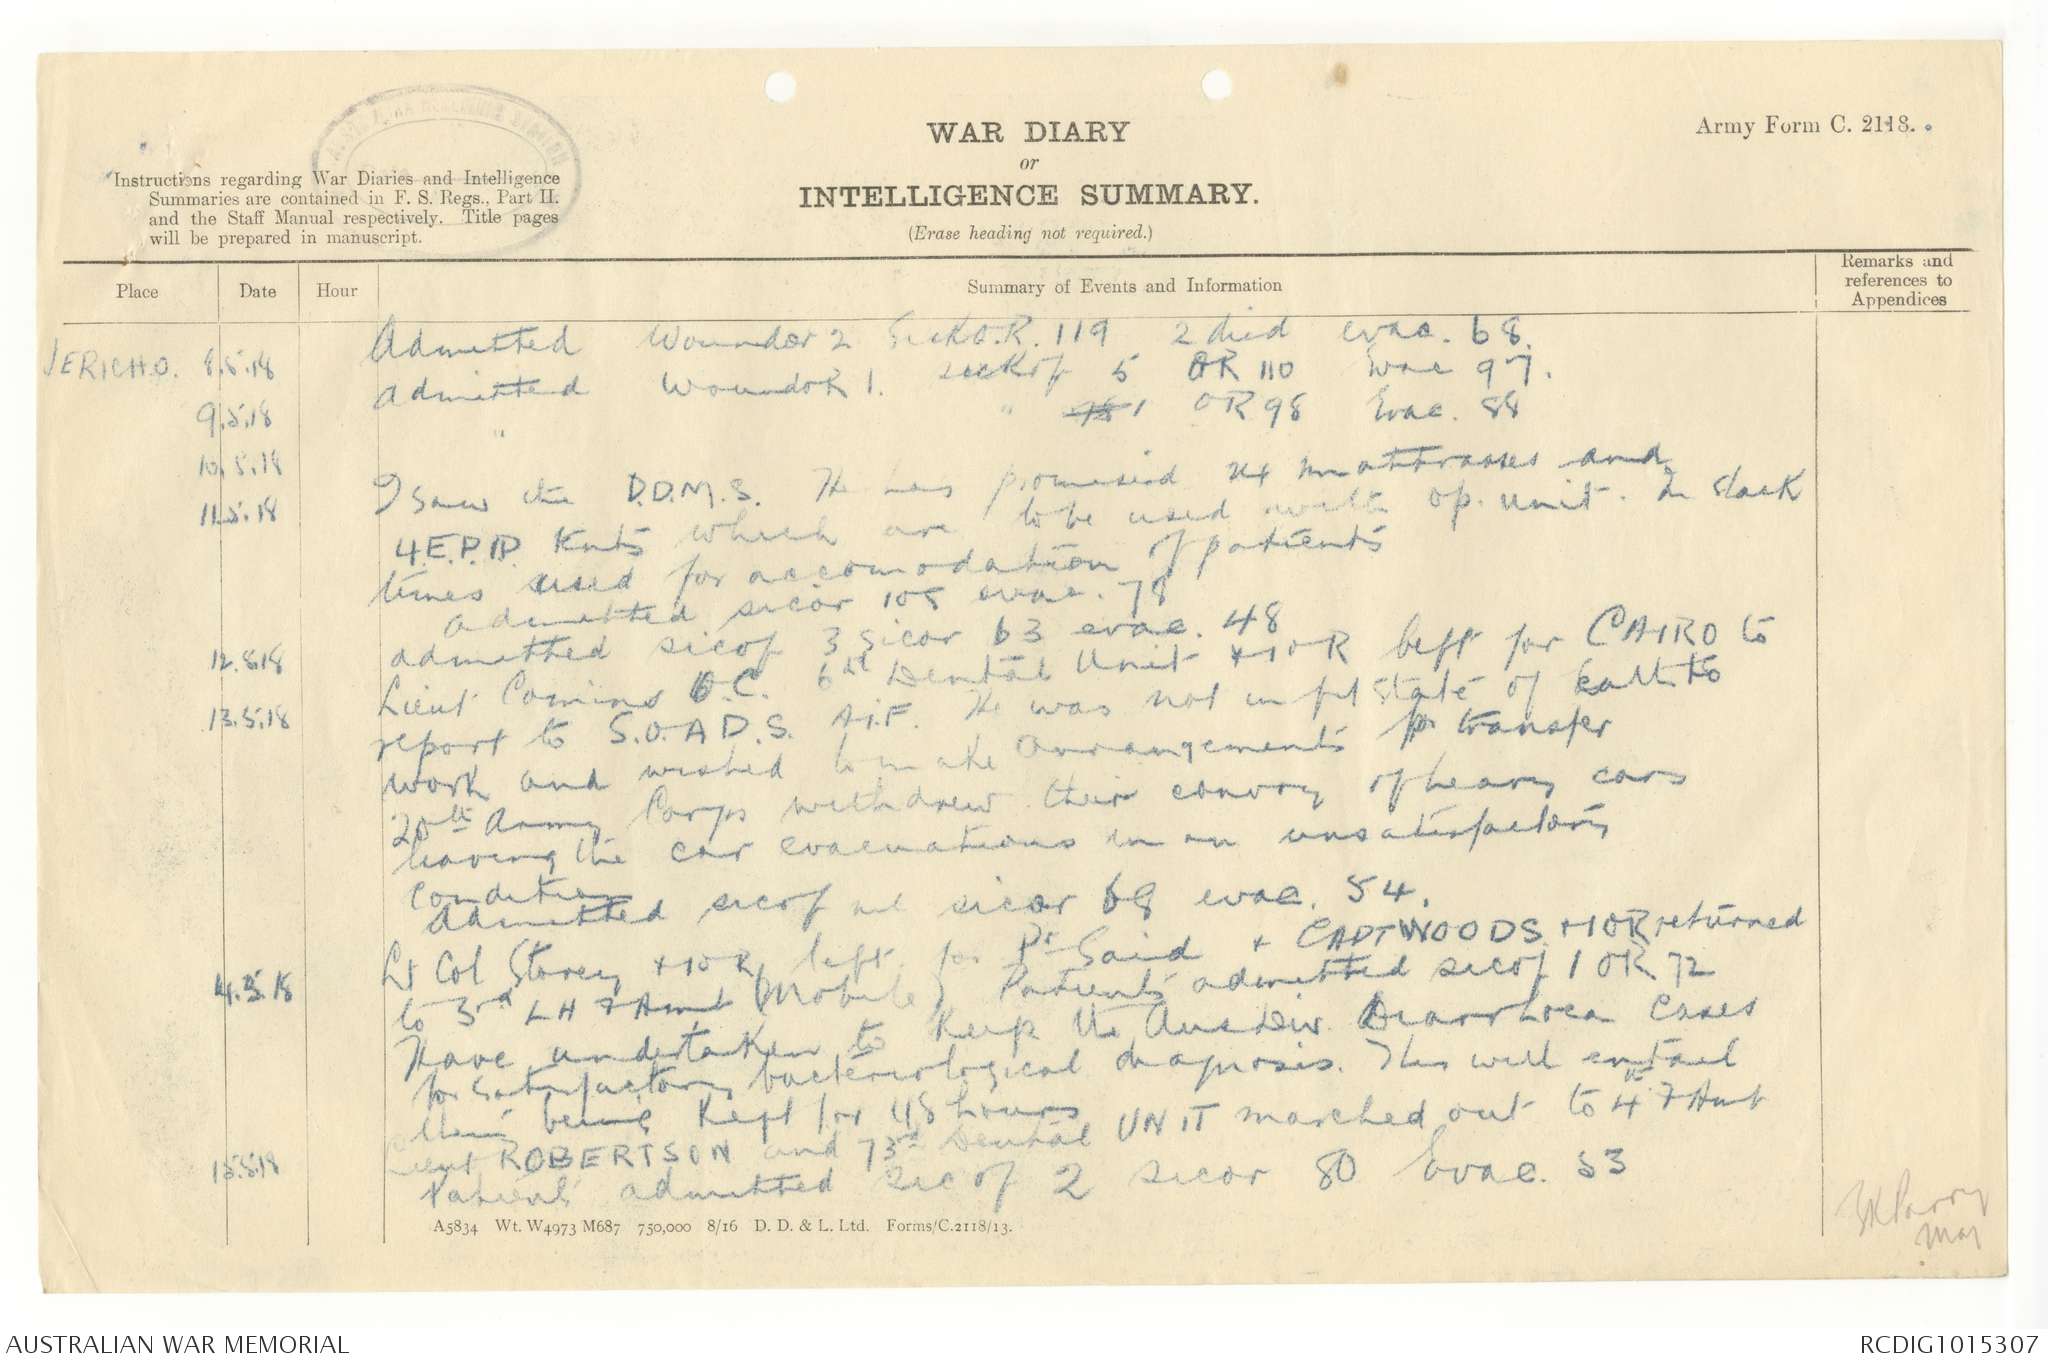 WAR DIARY
or
INTELLIGENCE SUMMARY.
(Erase heading not required.)
Army Form C. 2118.
Instructions regarding War Diaries and Intelligence
Summaries are contained in F. S. Regs., Part II.
and the Staff Manual respectively. Title pages
will be prepared in manuscript.
Place Date Hour Summary of Events and Information Remarks and references to Appendices
JERICHO. 8.5.18 Admitted WoundOR 2 SickO.R. 119 2 died evac. 68.
9.5.18 Admitted WoundOR 1. sickof 5 OR 110 Evac 97.
10.5.18 " " 1 OR 98 Evac. 88
11.5.18 I saw the D.D.M.S. He promised 24 mattrasses and
4.E.P.I.P. Tents which are to be used with op. unit. In slack
times used for accomodation of patients
admitted sicor 108 evac. 78
12.5.18 admitted sicof 3 sicor 63 evac. 48
13.5.18 Lieut Comins O.C. 6th Dental Unit + 1 OR left for CAIRO to
report to S.O.A D.S. A.I.F. He was not in fit state of health to
work and wished to make arrangements for transfer
20th Army Corps withdrew their convoy of heavy cars
leaving the car evacuations in an unsatisfactory
condition
Admitted sicof nil sicor 68 evac. 54.
14.5.18 Lt Col Storey + 1 OR left for Pt Said + CAPT WOODS + 1 OR returned
to 3rd LH F Amb (Mobile) Patients admitted sicof 1 OR 72
Have undertaken to keep the Aus Div. Diarrhoea cases
for satisfactory bacteriological diagnosis. This will entail
their being kept for 48 hours
15.5.18 Lieut ROBERTSON and 73rd Dental UNIT marched out to 4th F Amb
Patients admitted sic of 2 sicor 80 Evac. 53
A5834 Wt. W4973 M687 750,000 8/16 D. D. & L. Ltd. Forms/C.2118/13.
Parry
Maj
AUSTRALIAN WAR MEMORIAL
RCDIG1015307